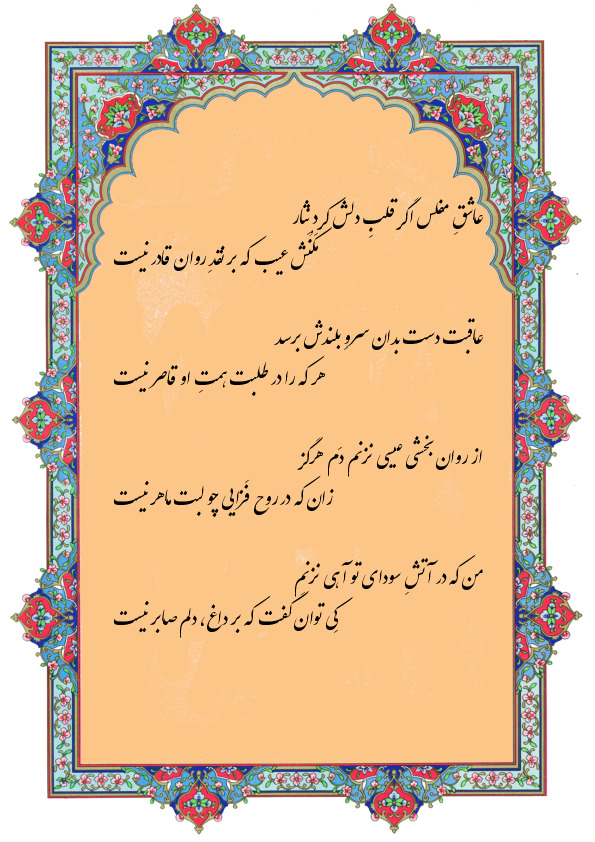 عاشقِ مفلس اگر قلبِ دلش کرد نثار
مکنش عیب که بر نقدِ روان قادر نیست
عاقبت دست بدان سروِ بلندش برسد
هر که را در طلبت همتِ او قاصر نیست
از روان بخشی عیسی نزنم دَم هرگز
زان که در روح فَزایی چو لبت ماهر نیست
من که در آتشِ سودای تو آهی نزنم
کِی توان گفت که بر داغ، دلم صابر نیست